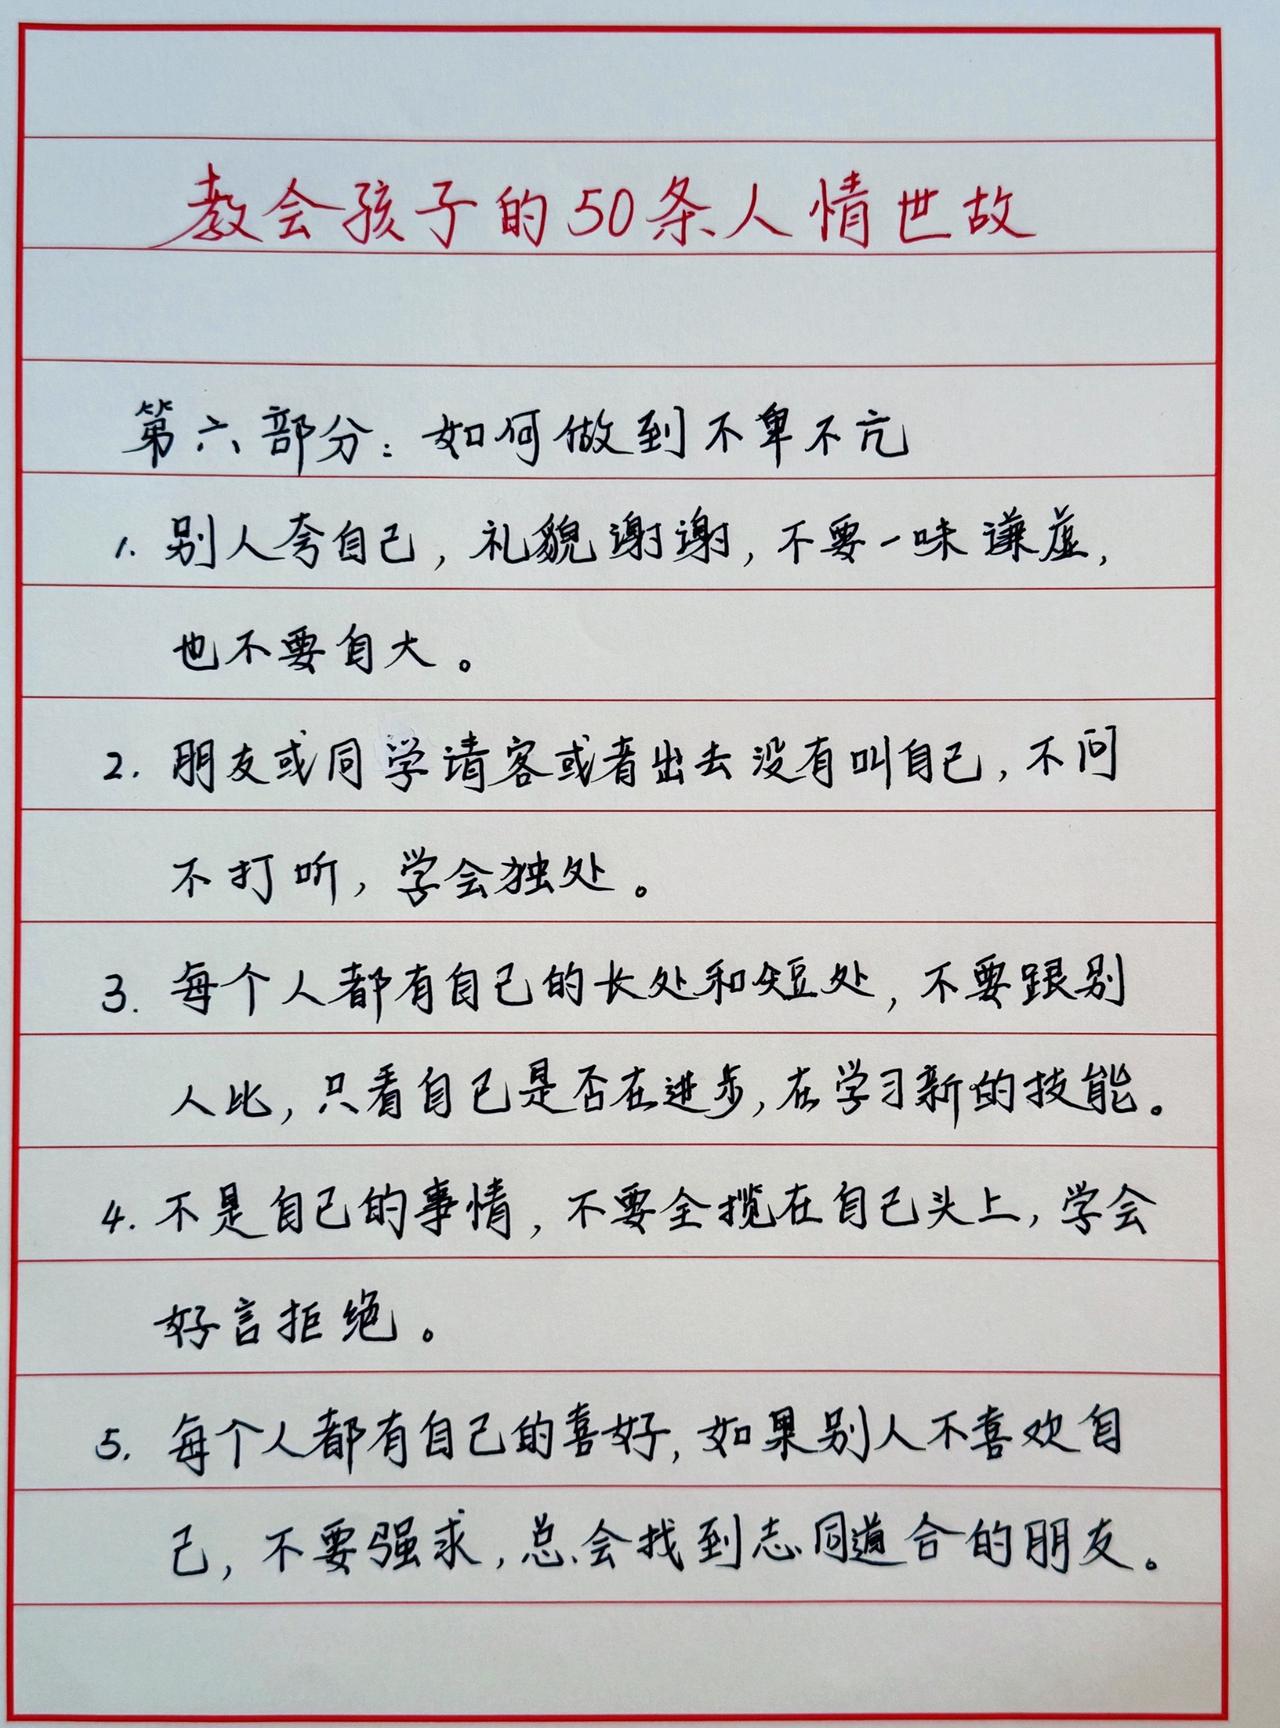 教会孩子的50条人情世故
第六部分：如何做到不卑不亢
1. 别人夸自己，礼貌谢谢，不要一味谦虚，
也不要自大。
2. 朋友或同学请客或者出去没有叫自己，不问
不打听，学会独处。
3. 每个人都有自己的长处和短处，不要跟别
人比，只看自己是否在进步，在学习新的技能。
4. 不是自己的事情，不要全揽在自己头上，学会
好言拒绝。
5. 每个人都有自己的喜好，如果别人不喜欢自
己，不要强求，总会找到志同道合的朋友。